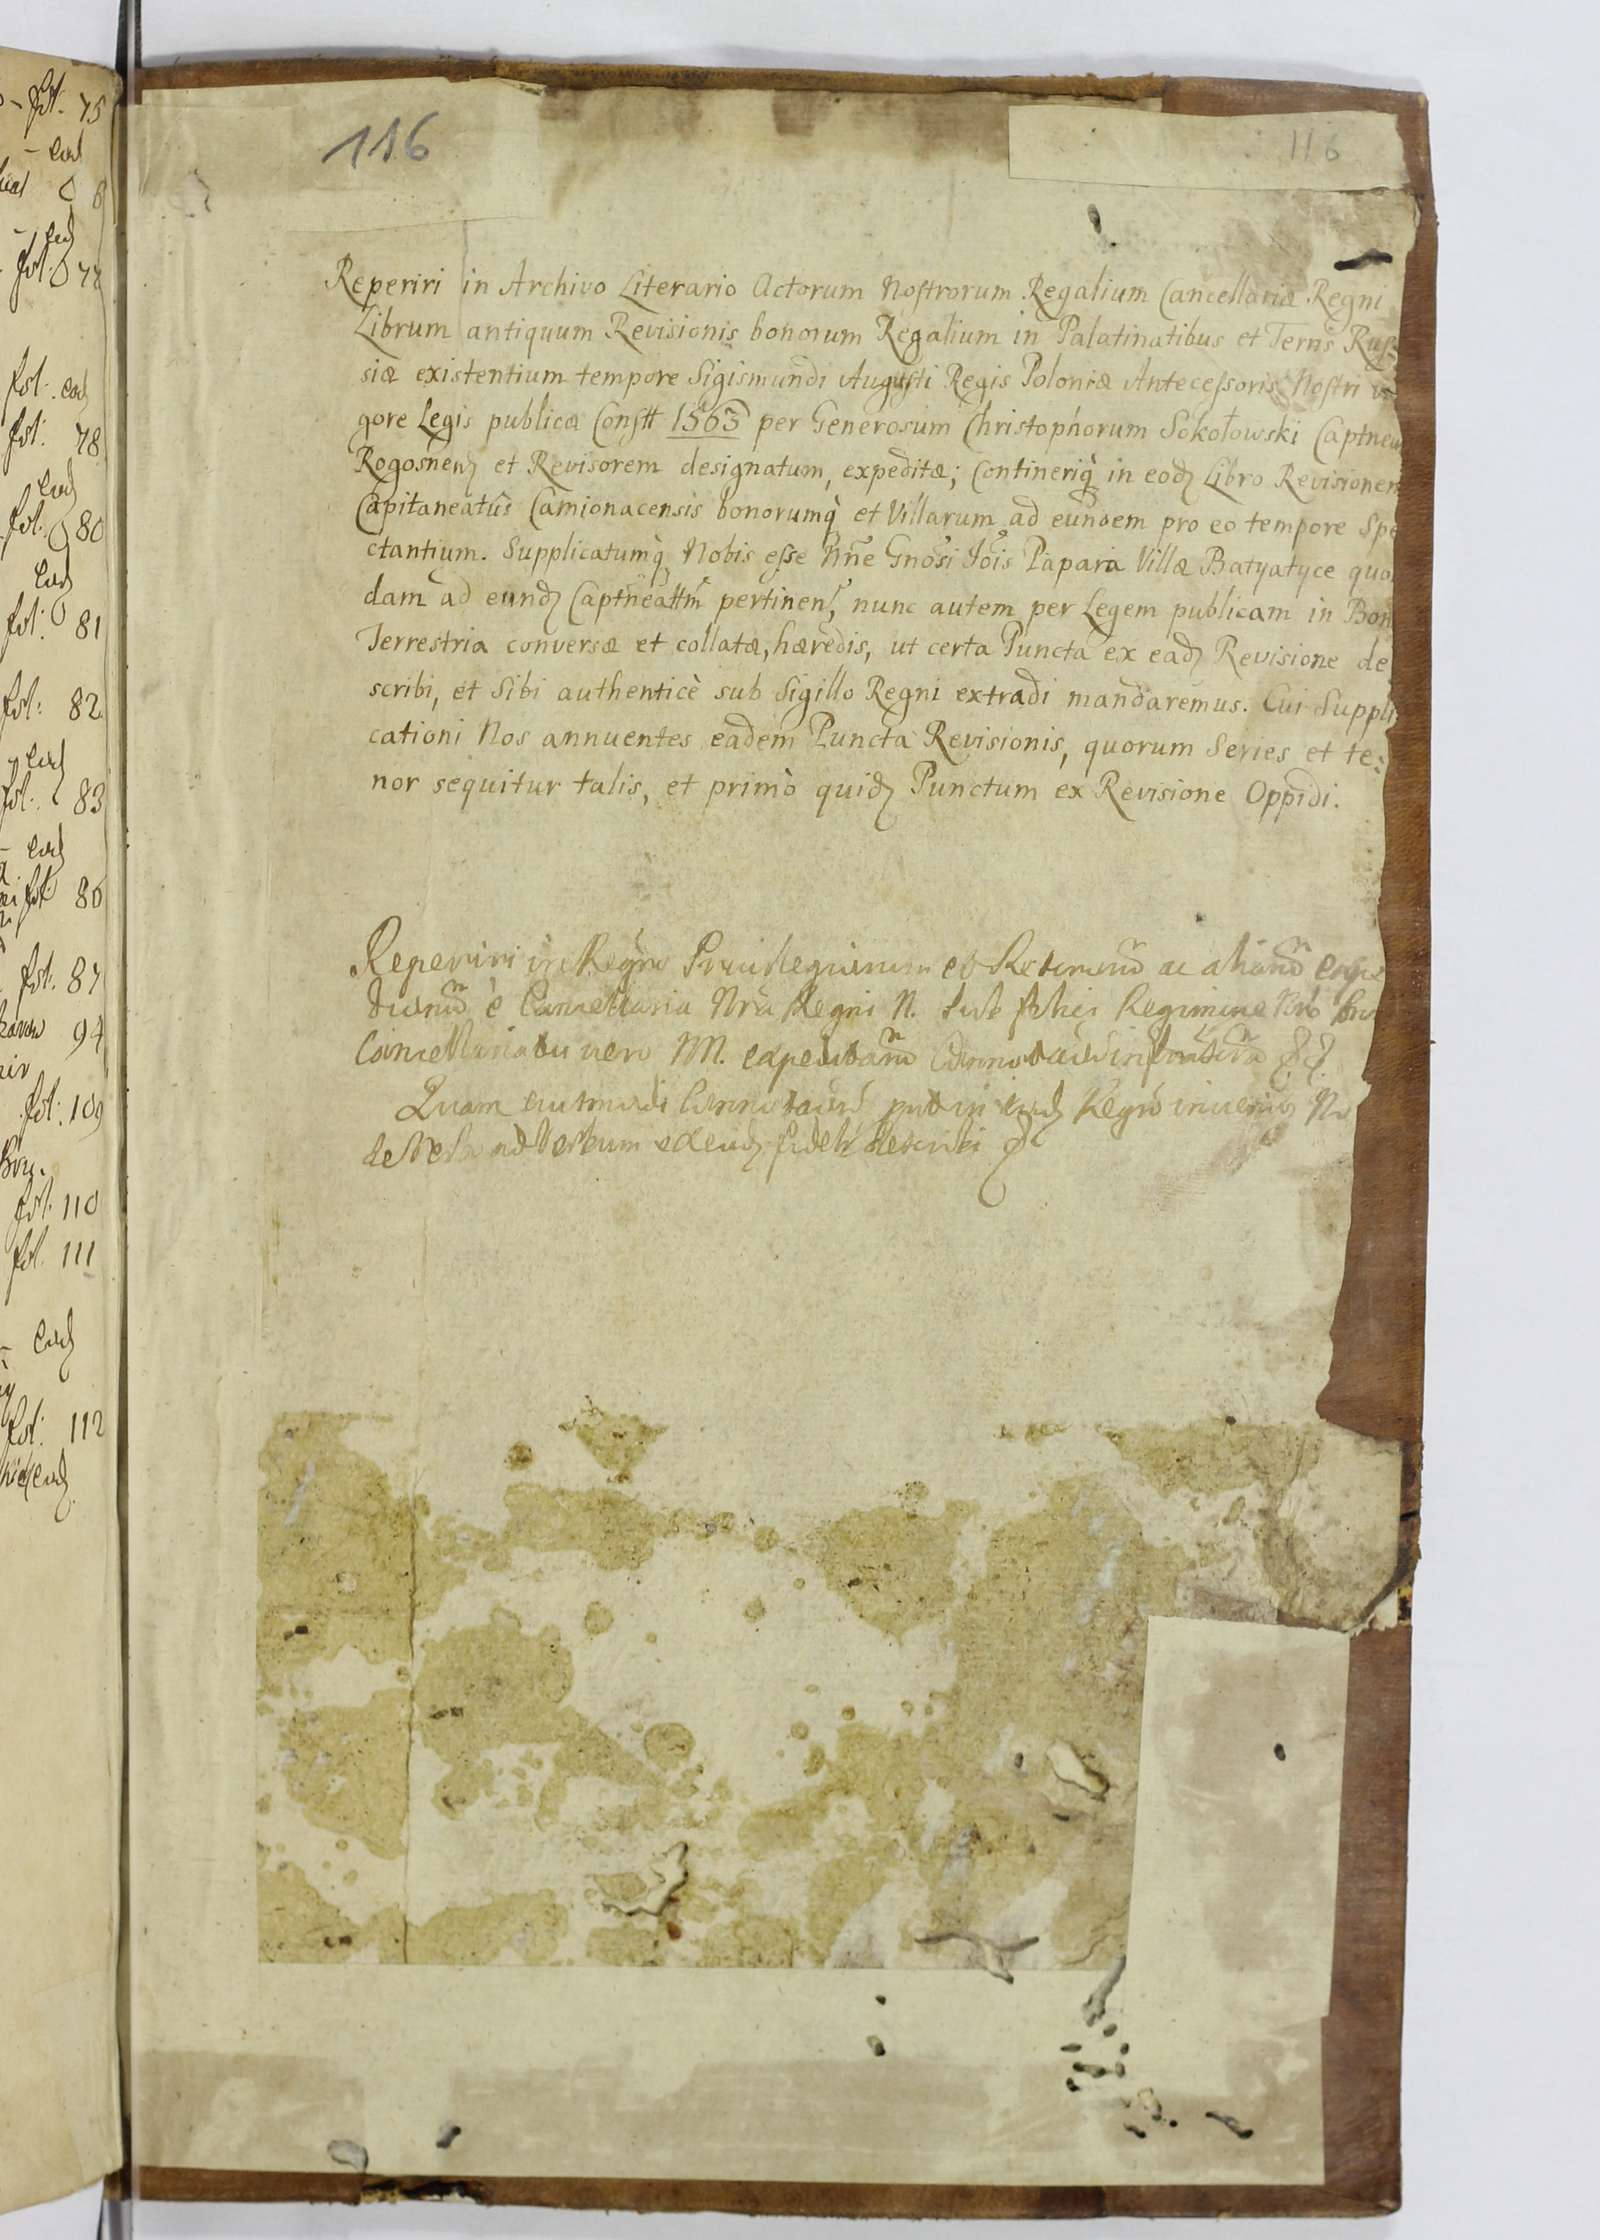 fol: 75
eod
8
eod
fol: 77
fol: eod
fol: 78
eod
fol: 80
eod
fol: 81
fol: 82
eod
fol: 83
eod
fol: 86
fol: 87
94
fol: 109
fol: 110
fol: 111
eod
fol: 112
eod
116
116
Reperiri in Archivo Literario Actorum Nostrorum Regalium Cancellariæ Regni
Librum antiquum Revisionis bonorum Regalium in Palatinatibus et Terris Rus-
siæ existentium tempore Sigismundi Augusti Regis Poloniæ Antecessoris Nostri vi
gore Legis publicæ Constt 1563 per Generosum Christophorum Sokołowski Captneu
Rogosnenz et Revisorem designatum, expeditæ; Contineriq̀ in eodz Libro Revisionem
Capitaneatûs Camionacensis bonorumq̀ et Villarum ad eundem pro eo tempore Spe
ctantium. Supplicatumq̀ Nobis esse Nne Gnosi Jois Papara Villæ Batyatyce quo
dam ad eundz Captneattm pertinens, nunc autem per Legem publicam in Bon
Terrestria conversæ et collatæ, hæredis, ut certa Puncta ex eadz Revisione de
scribi, et Sibi authenticè sub Sigillo Regni extradi mandaremus. Cui Suppli
cationi Nos annuentes eadem Puncta Revisionis, quorum Series et te:
nor sequitur talis, et primò quidz Punctum ex Revisione Oppidi.
Reperiri in Regro Privilegiorum et ac
è Cancellaria Nra Regni N. sub felici Regimine
Cancellariatu vero NN. expeditarum
Quam eiusmodi in eodz Regro
de Verbo ad Verbum describi